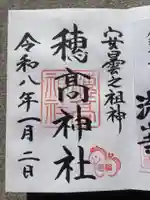 安曇之祖神
穂髙神社
令和八年一月二日